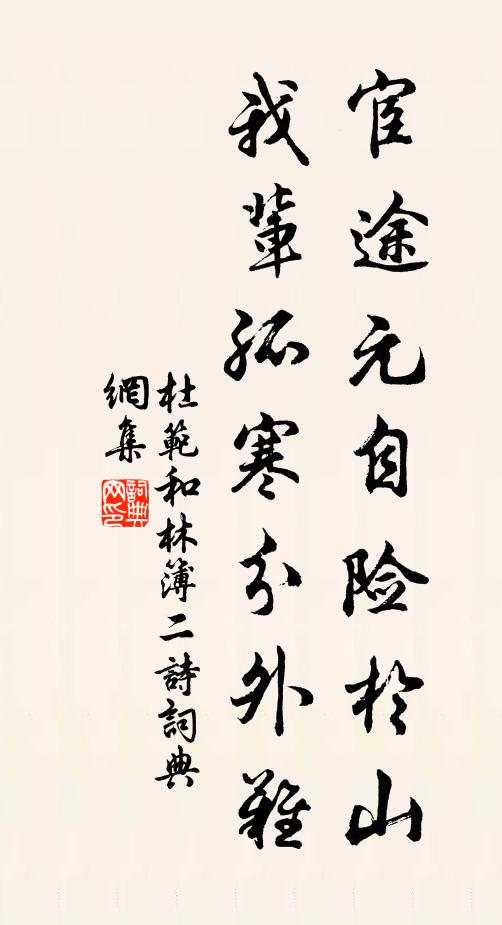 宦途元自险於山
我輩孤寒分外難
杜範和林簿二詩詞典
網集
詞典
网印